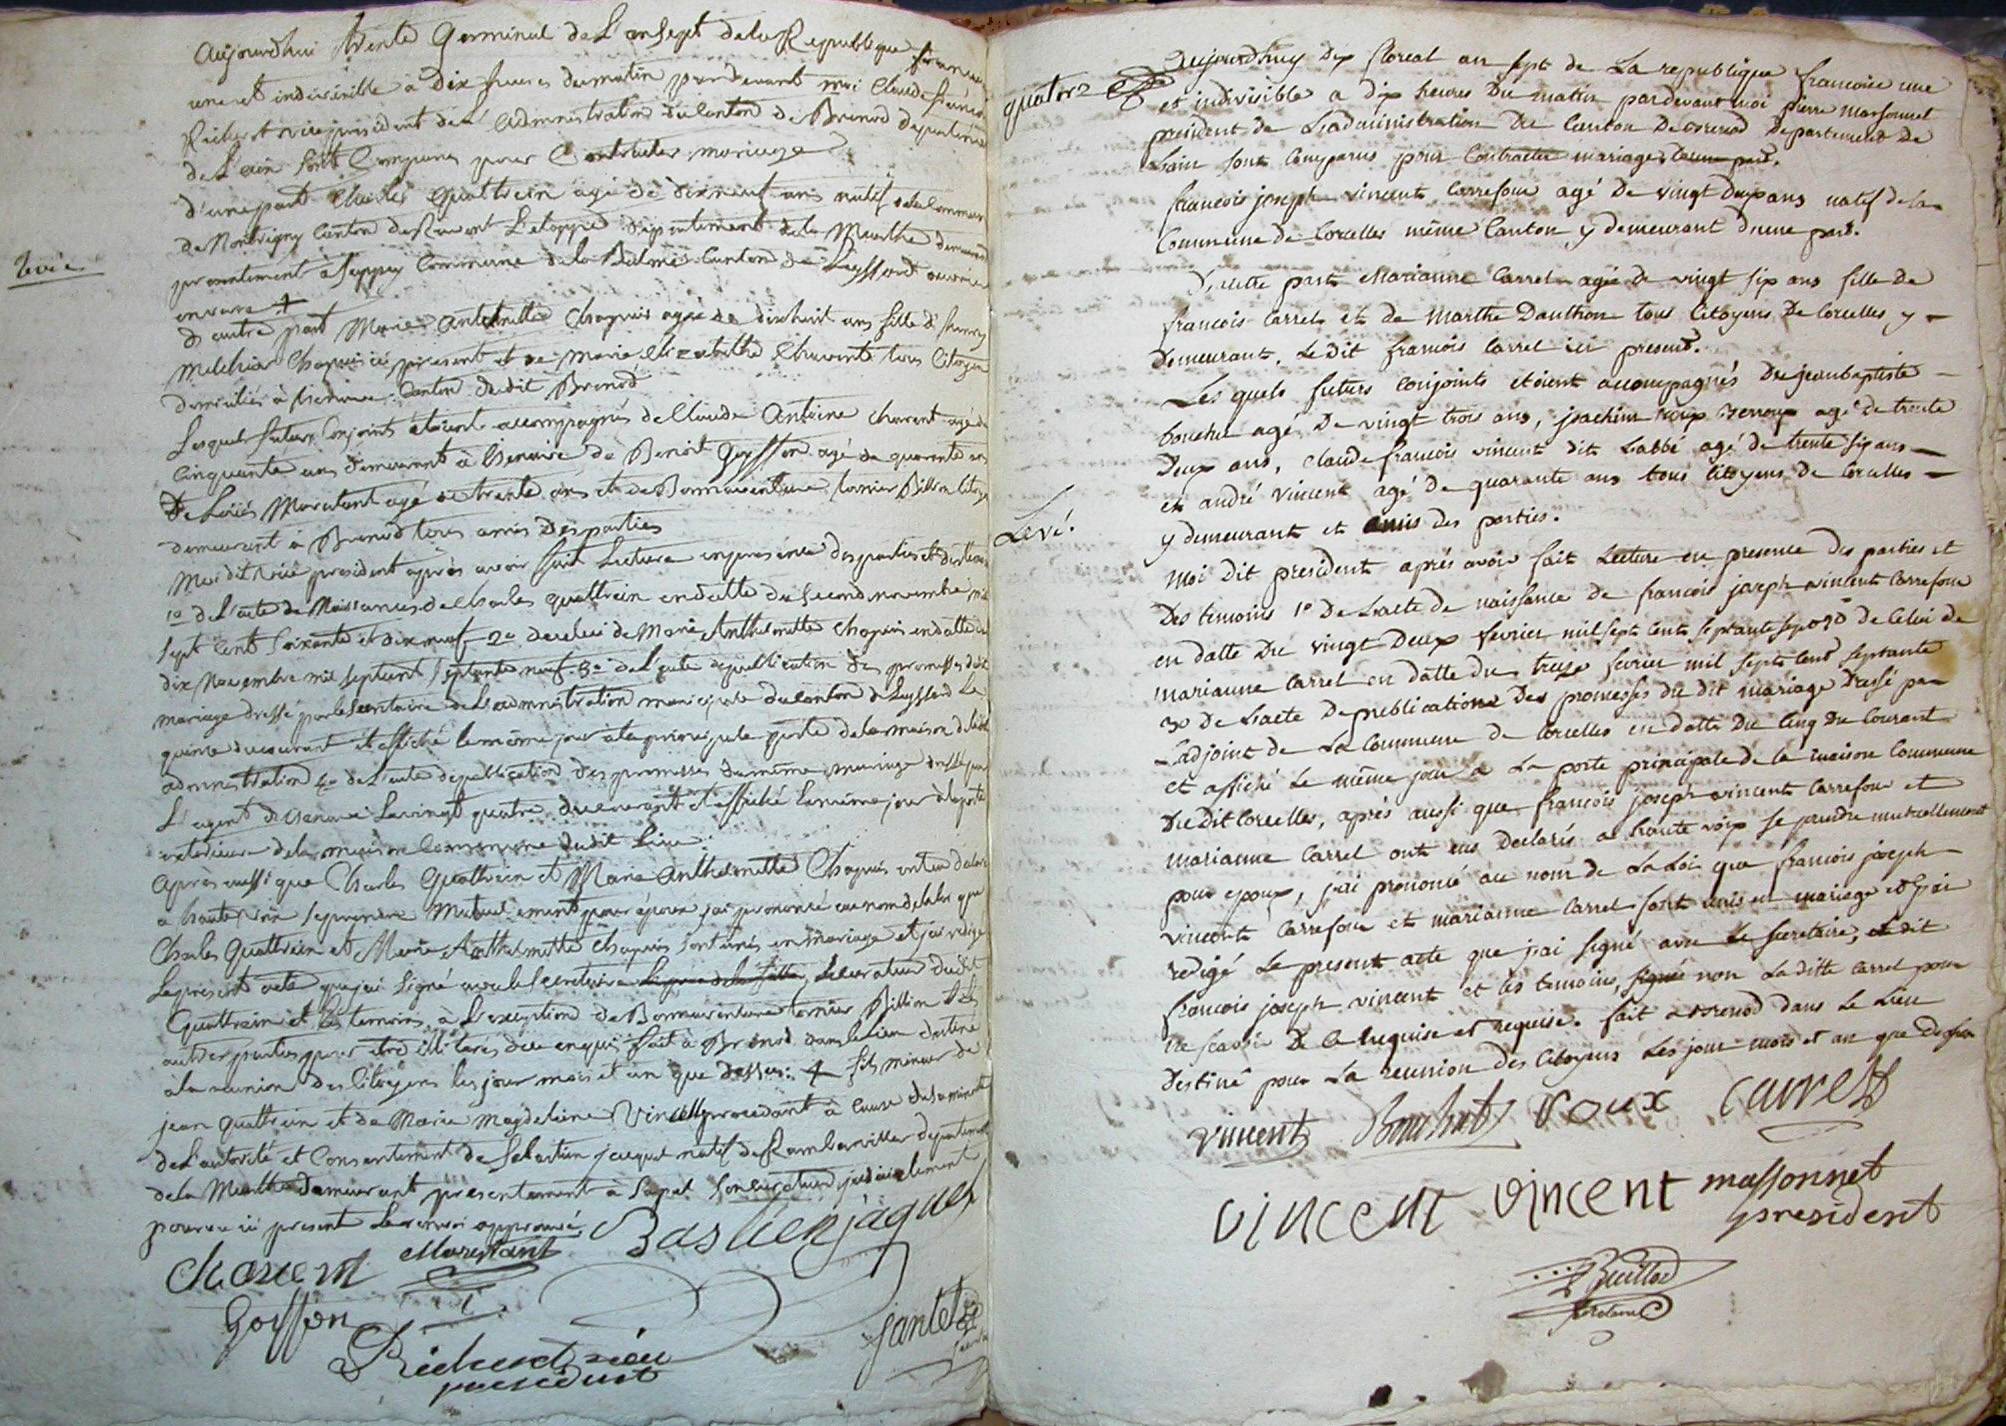 aujourdhui trente Germinal de L'an Sept de la Republique
une et indivisible a dix heures du matin par devant moi Claude
Richerd vice president de L'administration du Canton de Brenod departement
de L'ain sont Comparus pour Contracter mariage
d'une part Charles Quattrein agé de dixneuf ans natif de la Commune
de Canton de departement de la Meurthe
presentement à Commune de la Balme Canton de
en
d'autre part Marie Anthelmette Chapuis agée de dixhuit ans fille d'
Melchior Chapuis ici present et de Marie Elizabethe Charvent tous Citoyens
domiciliés à Canton du dit Brenod
Levée
Lesquels futurs Conjoints étoient accompagnés de Claude Antoine Charvent agé de
Cinquante ans demeurant à de Benoit Goyffon agé de quarante ans
De Loüis Maratant agé de trente ans et de Bonnaventure tornier Billion Citoyens
demeurant à Brenod tous amis Des parties
Moi dit vice president après avoir fait Lecture en presence des parties et des temoins
1o de L'acte de Naissance de Charles quattrein en datte du Second novembre mil
sept Cent Soixante et dix neuf 2o de celui de Marie Anthelmette Chapuis en datte du
dix Novembre mil sept cent septante neuf 3o de L'acte de publication des promesses dudit
mariage dressé par le Secretaire de L'administration municipale du Canton de Leyssard Le
quinze du courant et affiché le même jour à la principale porte de la maison de ladite
administration 4o de L'acte de publication des promesses du même mariage dressé par
L'agent de Le vingt quatre du courant et affiché le même jour à la porte
exterieure de la maison Commune du dit Lieu
après aussi que Charles Quattrein et Marie Anthelmette Chapuis ont eu declaré
a haute voix se prendre mutuellement pour époux j'ai prononcé au nom de la loi que
Charles Quattrein et Marie Anthelmette Chapuis sont unis en mariage et j'ai redigé
Le present acte que j'ai signé avec le Secretaire Le curateur dudit
Quattrein et les temoins, a L'exception de Bonnaventure tornier Billion et des
autres parties pour etre illiterés de ce enquis fait à Brenod dans le lieu destiné
a la reunion des Citoyens les jour mois et an que dessus: fils mineur de
jean quattrein et de Marie Magdeleine procedant à cause de sa minorité
de L'autorité et Consentement de Sebastien jacques natif de Rambervillers departement
de la Meurthe demeurant presentement à son curateur judicialement
pourvu ici present Le renvoi approuvé
Charvent Maratant Bastien jaques
Goiffon
Richerd vice
president
jantet
quatorz
Aujourdhuy Dix floreal an sept de La republique francoise une
et indivisible a dix heures Du matin pardevant moi pierre Massonnet
president de Ladministration Du Canton De Brenod Departement De
Lain sont Comparus pour Contracter mariage
francois joseph vincent Carrefour agé De vingt Deux ans natif de la
Commune de Corcelles même Canton y demeurant D'une part.
D'autre part Marianne Carrel agée de vingt six ans fille de
francois Carrel et de Marthe Danthon tous Citoyens De Corcelles y
Demeurant. Le dit francois Carrel ici present.
Les quels futurs Conjoints etoient accompagnés De jean baptiste
bouchu agé De vingt trois ans, joachim roux agé de trente
Deux ans, Claude francois vincent dit Labbé agé de trente six ans
et andré vincent agé De quarante ans tous Citoyens De Corcelles
Levé.
y demeurant et amis des parties.
Moi Dit president après avoir fait Lecture en presence Des parties et
Des temoins 1o De Lacte de naissance de francois joseph vincent Carrefour
en datte Du vingt Deux fevrier mil sept cent septante sept 2o De Celui de
marianne Carrel en datte du treize fevrier mil sept cent septante
3o De Lacte De publications Des promesses du dit mariage Dressé par
Ladjoint de La Commune de Corcelles en datte Du Cinq Du Courant
et affiché Le même jour a La porte principale de la maison Commune
Du Dit Corcelles, après aussi que francois joseph vincent Carrefour et
marianne Carrel ont eus Declarés a haute voix se prendre mutuellement
pour epoux, j'ai prononcé au nom de La Loi que francois joseph
vincent Carrefour et marianne Carrel sont unis en mariage et j'ai
redigé Le present acte que j'ai signé avec Le Secretaire, Le dit
francois joseph vincent et les temoins, non La ditte Carrel pour
ne scavoir De ce Enquise et requise. fait a Brenod dans Le Lieu
Destiné pour La reunion des Citoyens Les jour mois et an que Dessus
vincent Bouchut Roux Carrel
vincent vincent massonnet
president